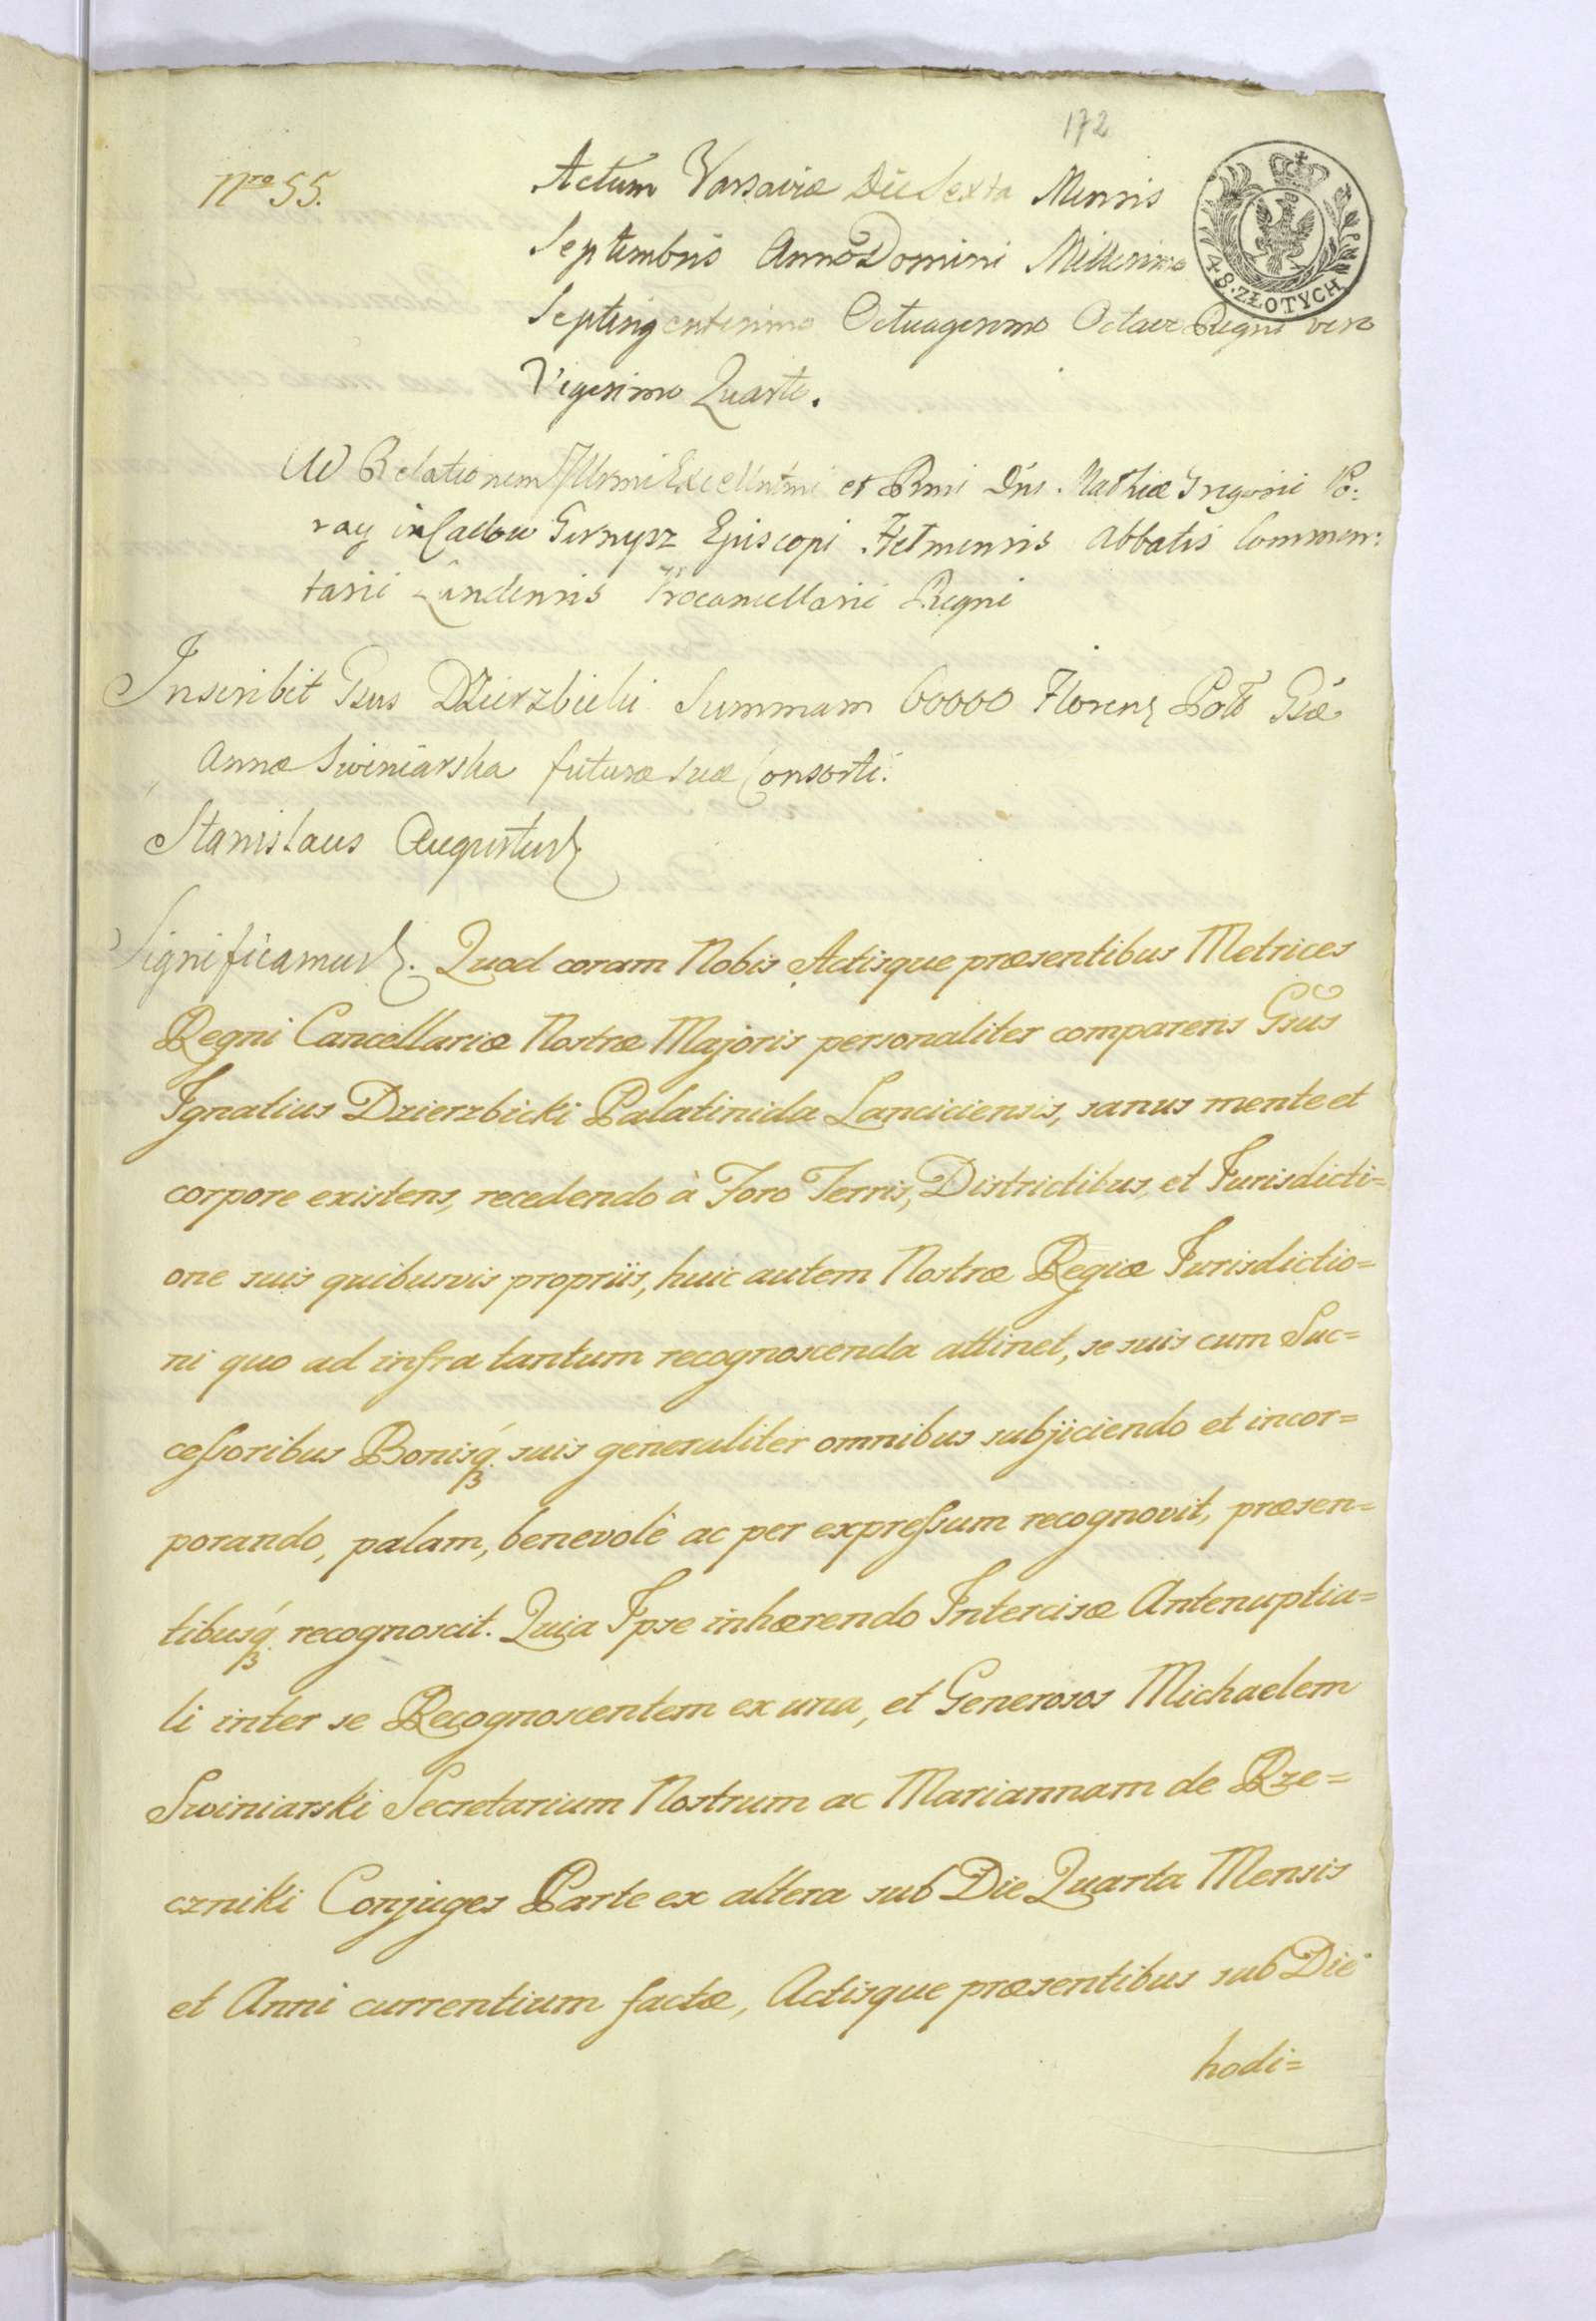 172
Nro 55.
Actum Varsaviæ Die Sexta Mensis
Septembris Anno Domini Millesimo
48. ZŁOTYCH
Septingentesimo Octuagesimo Octavo Regni vero
Vigesimo Quarto.
Ad Relationem Illrmi Excellntmi et Rmi Dni. Mathiæ Gregorii Po:
ray in Garnysz Episcopi Helmensis Abbatis Commen:
tarii Landensis Procancellarii Regni
Inscribit Gsus Dzierzbicki Summam 60000 Floren Poll Gsæ
Annæ Swiniarska futuræ suæ Consorti.
Stanislaus Augustus
Significamus. Quod coram Nobis Actisque præsentibus Metrices
Regni Cancellariæ Nostræ Majoris personaliter comparens Gsus
Ignatius Dzierzbicki Palatinida Lanciciensis, sanus mente et
corpore existens, recedendo à Foro Terris, Districtibus, et Jurisdicti=
one suis quibusvis propriis, huic autem Nostræ Regiæ Jurisdictio=
ni quo ad infra tantum recognoscenda attinet, se suis cum Suc=
ceſsoribus Bonisq́ suis generaliter omnibus subjiciendo et incor=
porando, palam, benevolè ac per expreſsum recognovit, præsen=
tibusq́ recognoscit. Quia Ipse inhærendo Intercisæ Antenuptia=
li inter se Recognoscentem ex una, et Generosos Michaelem
Swiniarski Secretarium Nostrum ac Mariannam de Rze=
czniki Conjuges Parte ex altera sub Die Quarta Mensis
et Anni currentium factæ, Actisque præsentibus sub Die
hodi=